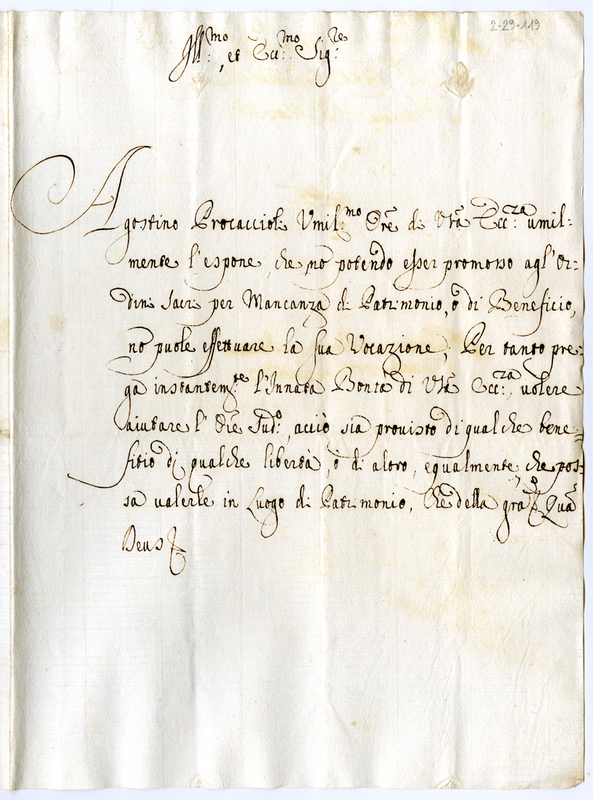 2-29-119
Ill:mo, et Ecc:mo Sig:re
Agostino Procaccioli Umil:mo Ore di Vra Ecc:za umil=
mente l'espone, che no potendo esser promosso agl'Or=
dini Sacri per Mancanza di Patrimonio, ò di Beneficio,
nò puole effettuare la sua Vocazione, Per tanto pre=
ga instantem:te l'Innata Bontà di Vra Ecc:za, volere
aiutare l'Ore Sud:o, acciò sia provisto di qualche bene=
fitio di qualche libertà, ò di altro, equalmente, che pos=
sa valerle in Luogo di Patrimonio, Che della gra Quà
Deus